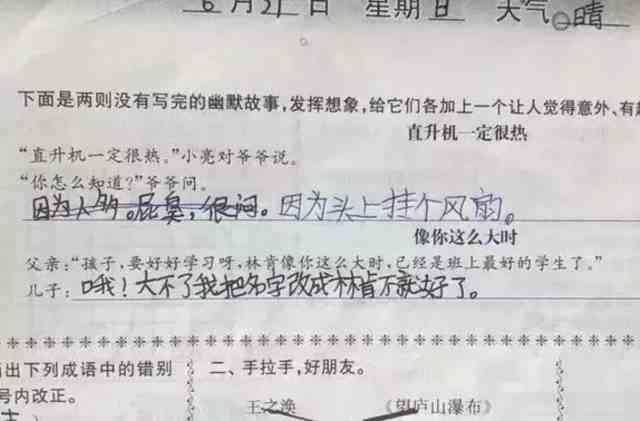 6月21日 星期日 天气 晴
下面是两则没有写完的幽默故事,发挥想象,给它们各加上一个让人觉得意外、有趣
直升机一定很热
“直升机一定很热。”小亮对爷爷说。
“你怎么知道?”爷爷问。
因为人多。屁臭,很闷。因为头上挂个风扇。
像你这么大时
父亲:“孩子,要好好学习呀,林肯像你这么大时,已经是班上最好的学生了。”
儿子:哦!大不了我把名字改成林肯不就好了。
出下列成语中的错别
号内改正。
二、手拉手,好朋友。
王之涣 《望庐山瀑布》